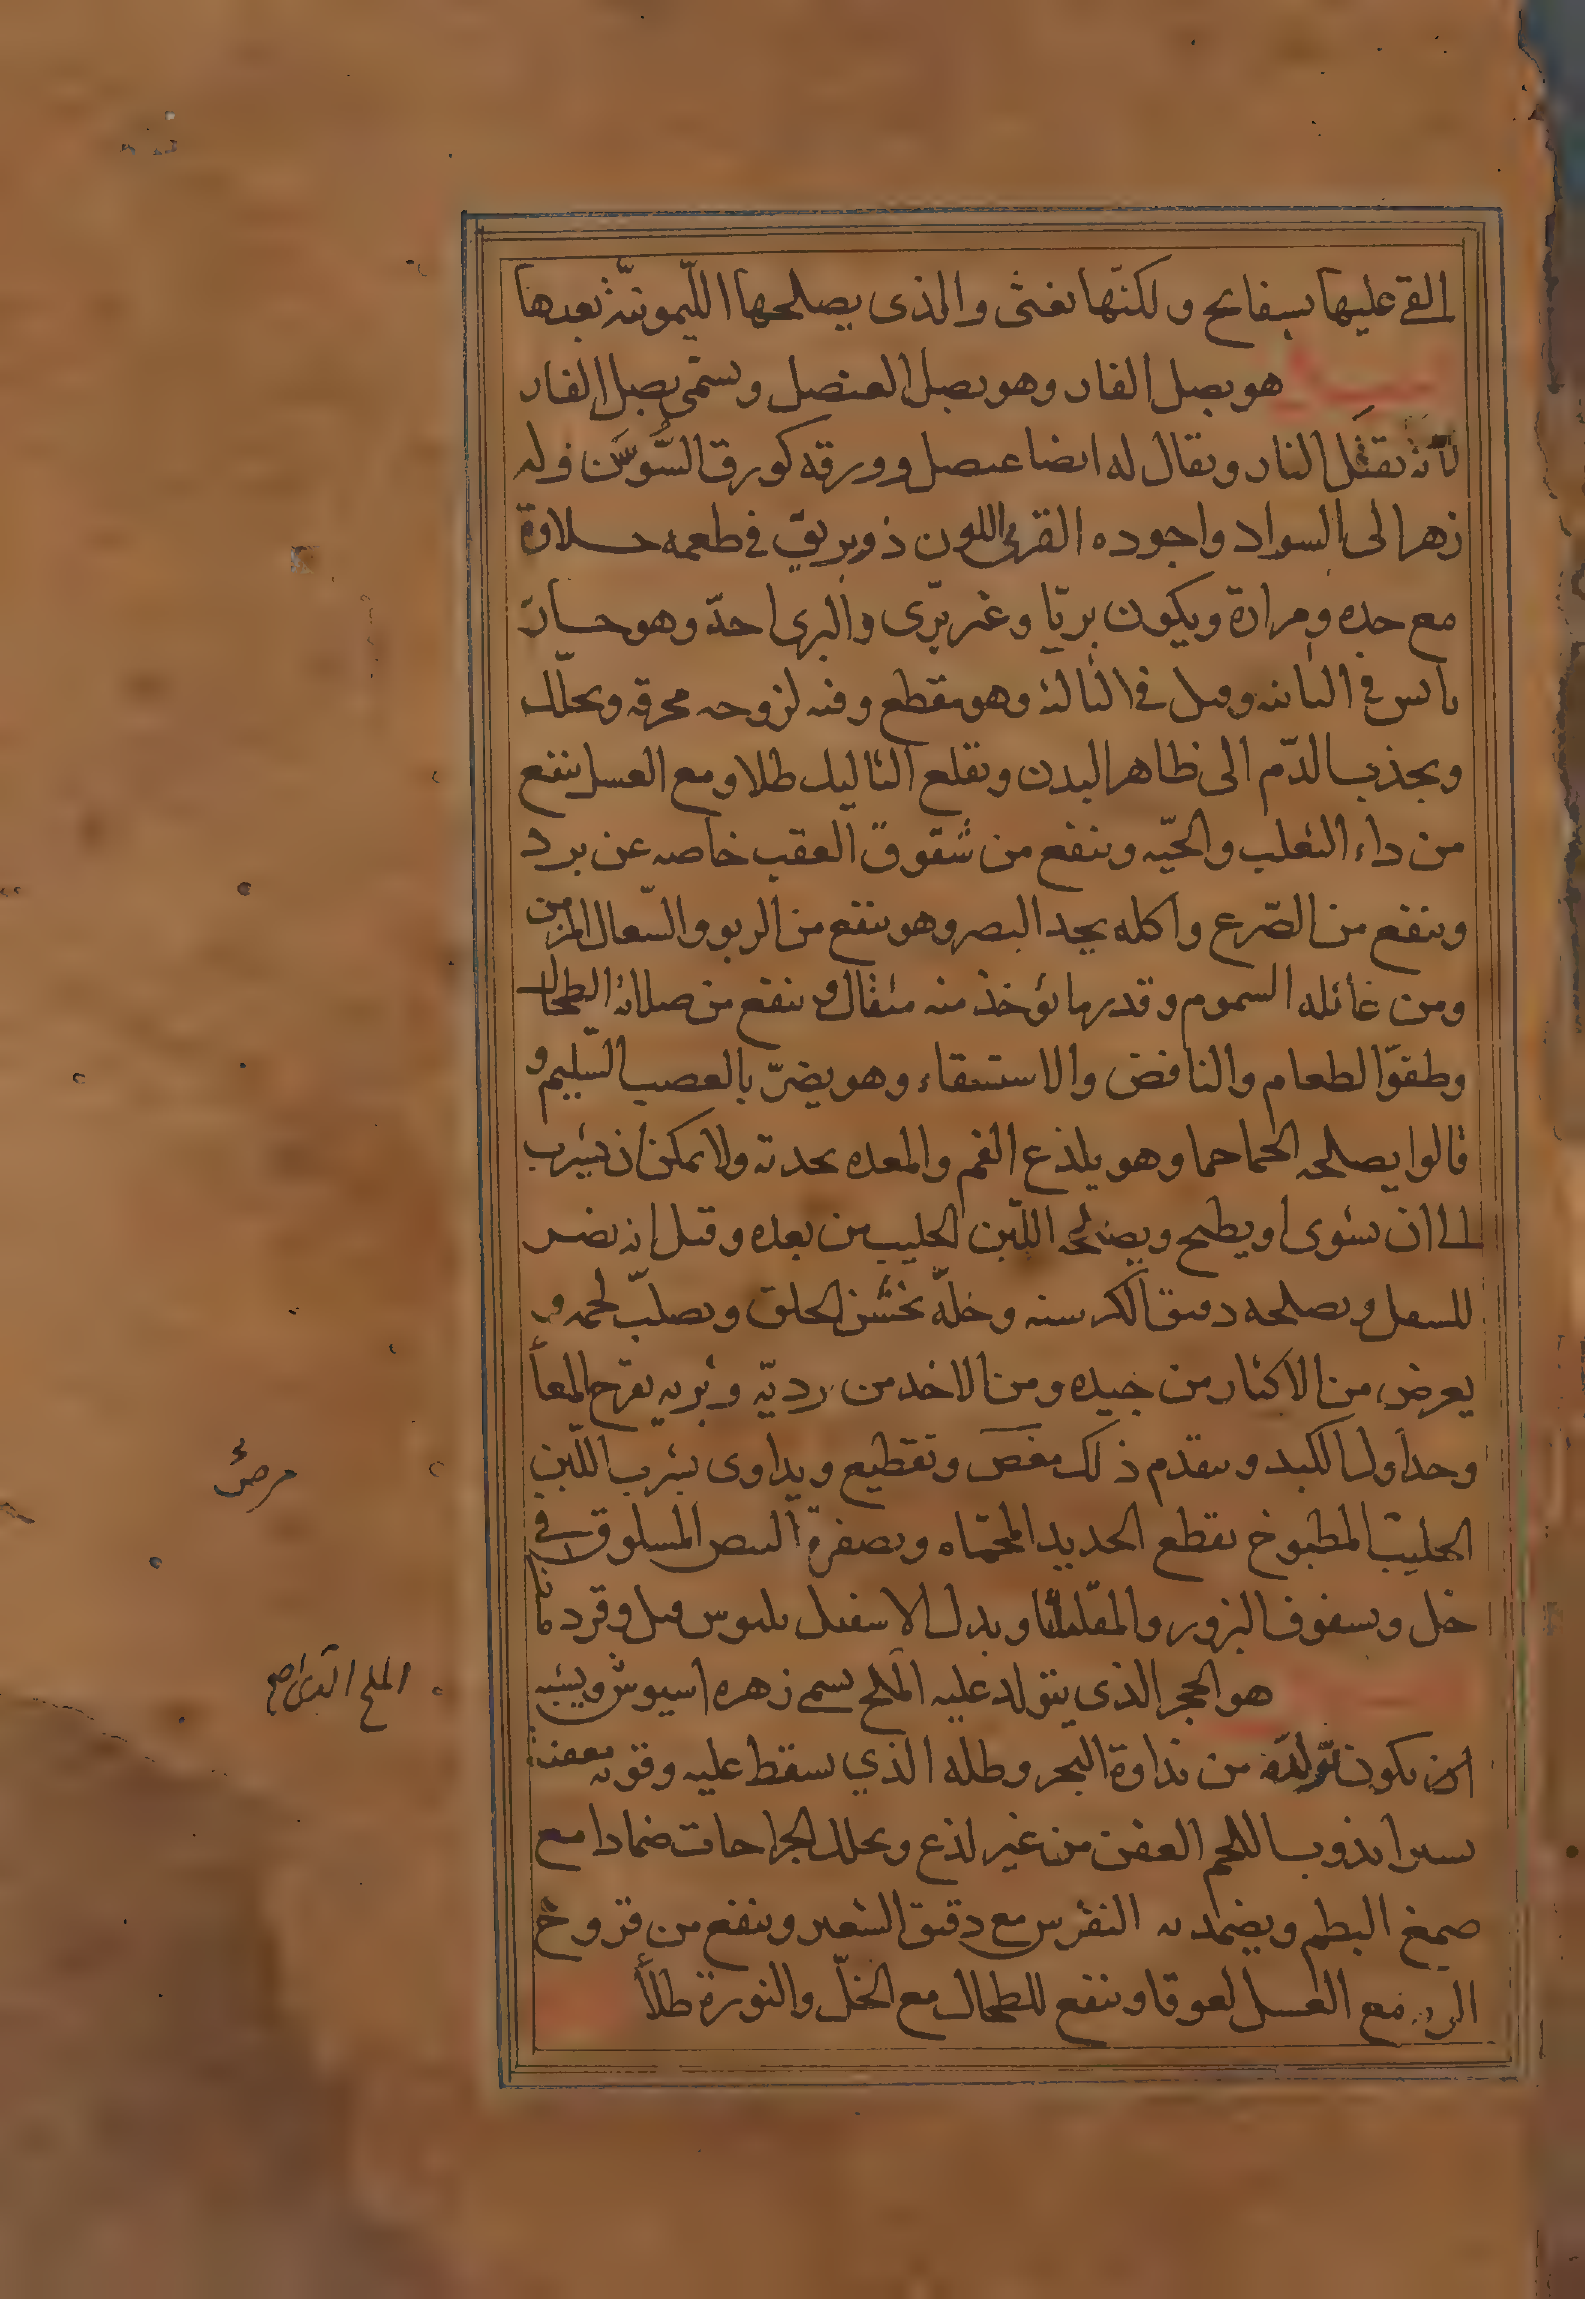 القى عليها بسفايج ولكنها تغثى والذى يصلحها الليمونية بعدها
هو بصل الفار وهو بصل العنصل ويسمى بصل الفار
لانه يقتل الفار ويقال له ايضا عنصل وورقه كورق السوسن وله
زهر الى السواد واجوده اللون ذو بريق فى طعمه حلاوة
مع حده ومرارة ويكون بريا وغير برى والبرى احد وهو حار
يابس فى الثانيه وقيل فى الثالثة وهو مقطع وفيه لزوجه محرقه ويحلل
ويجذب الدم الى ظاهر البدن ويقلع الثاليل طلا ومع العسل ينفع
من داء الثعلب والحيه وينفع من شقوق العقب خاصه عن برد
وينفع من الصرع واكله يحد البصر وهو ينفع من الربو والسعال المزمن
ومن غائله السموم وقدر ما يؤخذ منه مثقال وينفع من صلابة الطحال
وطفو الطعام والنافض والاستسقاء وهو يضر بالعصب السليم و
قالوا يصلحه الحماحما وهو يلذع الفم والمعده بحدته ولا يمكن ان يشرب
الا ان يشوى او يطبخ ويصلحه اللبن الحليب من بعده وقيل انه يضر
للسفل ويصلحه دقيق الكرسنه وخله يخشن الحلق ويصلب لحمه و
يعرض من الاكثار من جيده ومن الاخد من رديه وبريه تقرح المعا
وحداول الكبد ويتقدم ذلك مغص وتقطيع ويداوى بشرب اللبن
الحليب المطبوخ بقطع الحديد المحماه وبصفرة البيض المسلوق فى
خل وبسفوف البزور والمقلياثا وبدل الاسقيل بلبوس مثل وقردمانا
هو الحجر الذى يتولد عليه الملح يسمى زهره اسيوش ويشبه
ان يكون تولده من نداوة البحر وطله الذي يسقط عليه وقوته معفنة
يسيرا يذوب اللحم العفن من غير لذع ويحلل الجراحات ضمادا مع
صمغ البطم ويضمد به النقرس مع دقيق الشعير وينفع من قروح
الريه مع العسل لعوقا وينفع للطحال مع الخل والنورة طلأ